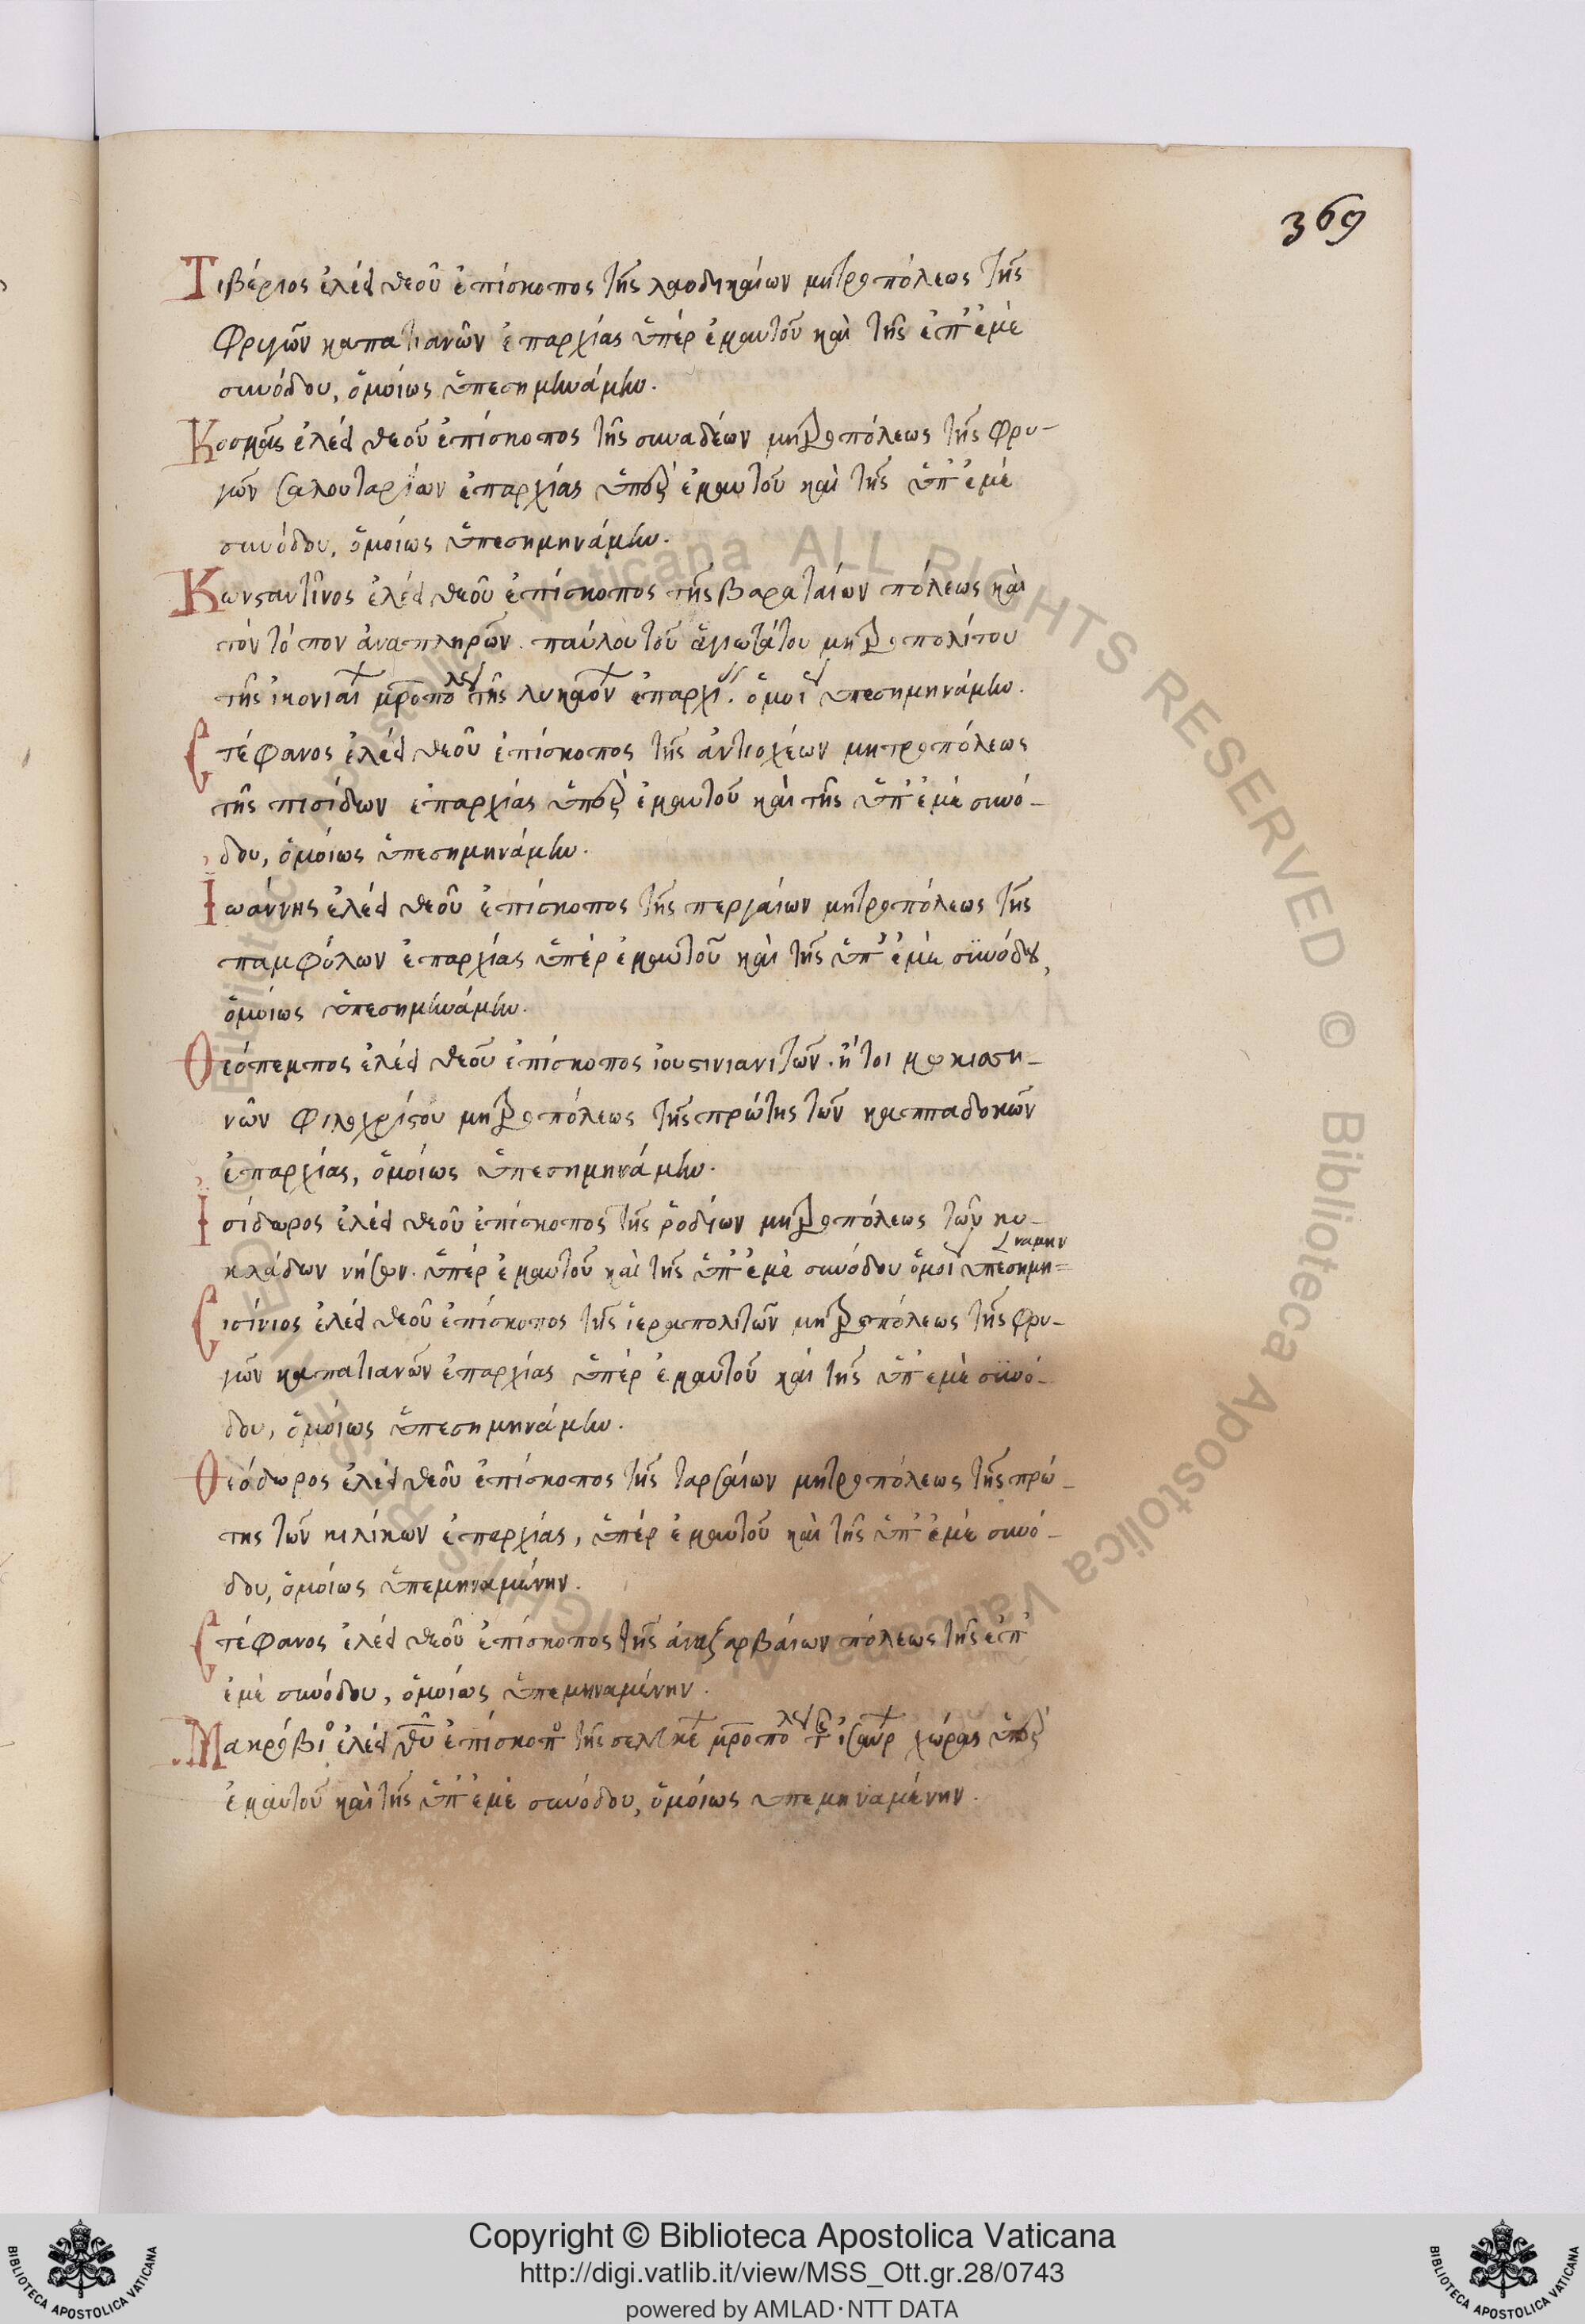 369
Τιβέριος ἐλέει θεοῦ ἐπίσκοπος τῆς λαοδικαίων μητροπόλεως τῆς
Φρυγῶν καπατιανῶν ἐπαρχίας ὑπὲρ ἐμαυτοῦ καὶ τῆς ἐπ' ἐμὲ
συνόδου, ὁμοίως ὑπεσημηνάμην.
Κοσμᾶς ἐλέει θεοῦ ἐπίσκοπος τῆς συναδέων μητροπόλεως τῆς Φρυ-
γῶν σαλουταρίων ἐπαρχίας ὑπὲρ ἐμαυτοῦ καὶ τῆς ὑπ' ἐμὲ
συνόδου, ὁμοίως ὑπεσημηνάμην.
Κωνσταντῖνος ἐλέει θεοῦ ἐπίσκοπος τῆς βαραταίων πόλεως καὶ
τὸν τόπον ἀναπληρῶν. παύλου τοῦ ἁγιωτάτου μητροπολίτου
τῆς ἰκονια μροπόλεως τῆς λυκαον ἐπαρχι. ὁμοι ὑπεσημηνάμην.
Στέφανος ἐλέει θεοῦ ἐπίσκοπος τῆς ἀντιοχέων μητροπόλεως
τῆς πισίδων ἐπαρχίας ὑπὲρ ἐμαυτοῦ καὶ τῆς ὑπ' ἐμὲ συνό-
δου, ὁμοίως ὑπεσημηνάμην.
Ἰωάννης ἐλέει θεοῦ ἐπίσκοπος τῆς περγαίων μητροπόλεως τῆς
παμφύλων ἐπαρχίας ὑπὲρ ἐμαυτοῦ καὶ τῆς ὑπ' ἐμὲ συνόδου,
ὁμοίως ὑπεσημηνάμην.
Θεόπεμπος ἐλέει θεοῦ ἐπίσκοπος ἰουστινιανιτῶν. ἤτοι μωκιση-
νῶν φιλοχρίστου μητροπόλεως τῆς πρώτης τῶν καππαδοκῶν
ἐπαρχίας, ὁμοίως ὑπεσημηνάμην.
Ἰσίδωρος ἐλέει θεοῦ ἐπίσκοπος τῆς ῥοδίων μητροπόλεως τῶν κυ-
κλάδων νήσων. ὑπὲρ ἐμαυτοῦ καὶ τῆς ὑπ' ἐμὲ συνόδου ὁμοι ὑπεσημη=
ναμην
Σισίνιος ἐλέει θεοῦ ἐπίσκοπος τῆς ἱεραπολιτῶν μητροπόλεως τῆς φρυ-
γῶν καπατιανῶν ἐπαρχίας ὑπὲρ ἐμαυτοῦ καὶ τῆς ὑπ' ἐμὲ συνό-
δου, ὁμοίως ὑπεσημηνάμην.
Θεόδωρος ἐλέει θεοῦ ἐπίσκοπος τῆς ταρσαίων μητροπόλεως τῆς πρώ-
της τῶν κιλίκων ἐπαρχίας, ὑπὲρ ἐμαυτοῦ καὶ τῆς ὑπ' ἐμὲ συνό-
δου, ὁμοίως ὑπεμηναμένην.
Στέφανος ἐλέει θεοῦ ἐπίσκοπος τῆς ἀναξαρβαίων πόλεως τῆς ἐπ'
ἐμὲ συνόδου, ὁμοίως ὑπεμηναμένην.
Μακρόβιο ἐλέει θυ ἐπίσκοπο τῆς σελευκε μροπόλεως τ ἰσαυρ χώρας ὑπὲρ
ἐμαυτοῦ καὶ τῆς ὑπ' ἐμὲ συνόδου, ὁμοίως ὑπεμηναμένην.
© Biblioteca Apostolica Vaticana ALL RIGHTS RESERVED © Biblioteca Apostolica Vaticana ALL RIGHTS RESERVED
Copyright © Biblioteca Apostolica Vaticana
http://digi.vatlib.it/view/MSS_Ott.gr.28/0743
powered by AMLAD·NTT DATA
BIBLIOTECA APOSTOLICA VATICANA
BIBLIOTECA APOSTOLICA VATICANA